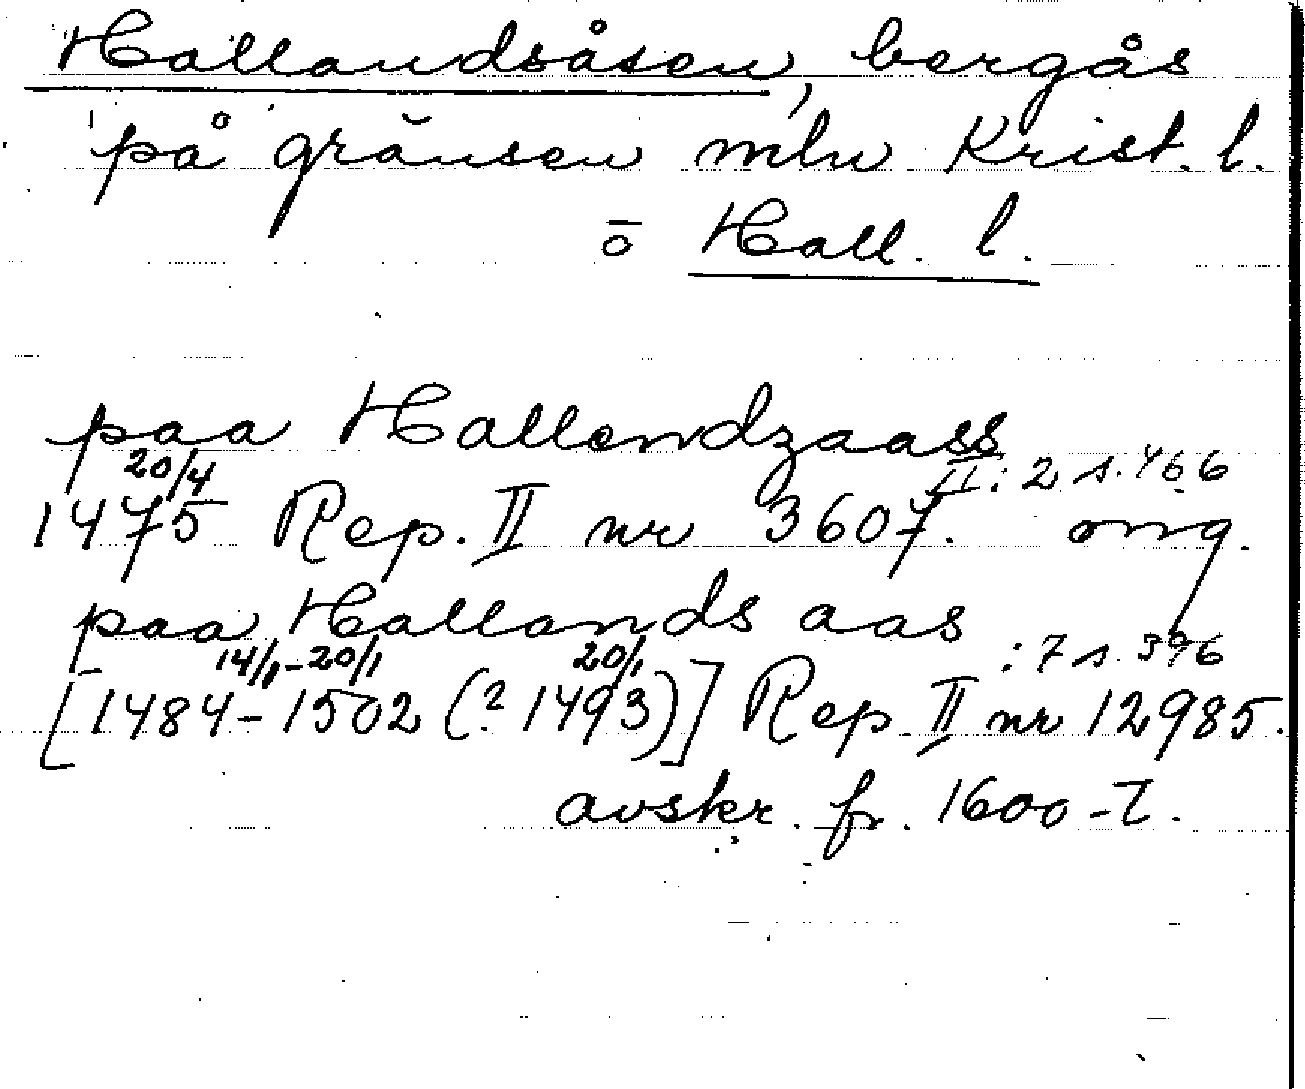 Hallandsåsen, bergås
på gränsen mln Krist. l.
ō Hall. l.
paa Hallendzaass
20/4 II:2 s. 466
1475 Rep. II nr 3607. orig.
paa Hallands aas
14/1-20/1 20/1 :7 s. 396
[1484-1502 (? 1493)] Rep. II nr 12985.
avskr. fr. 1600-t.